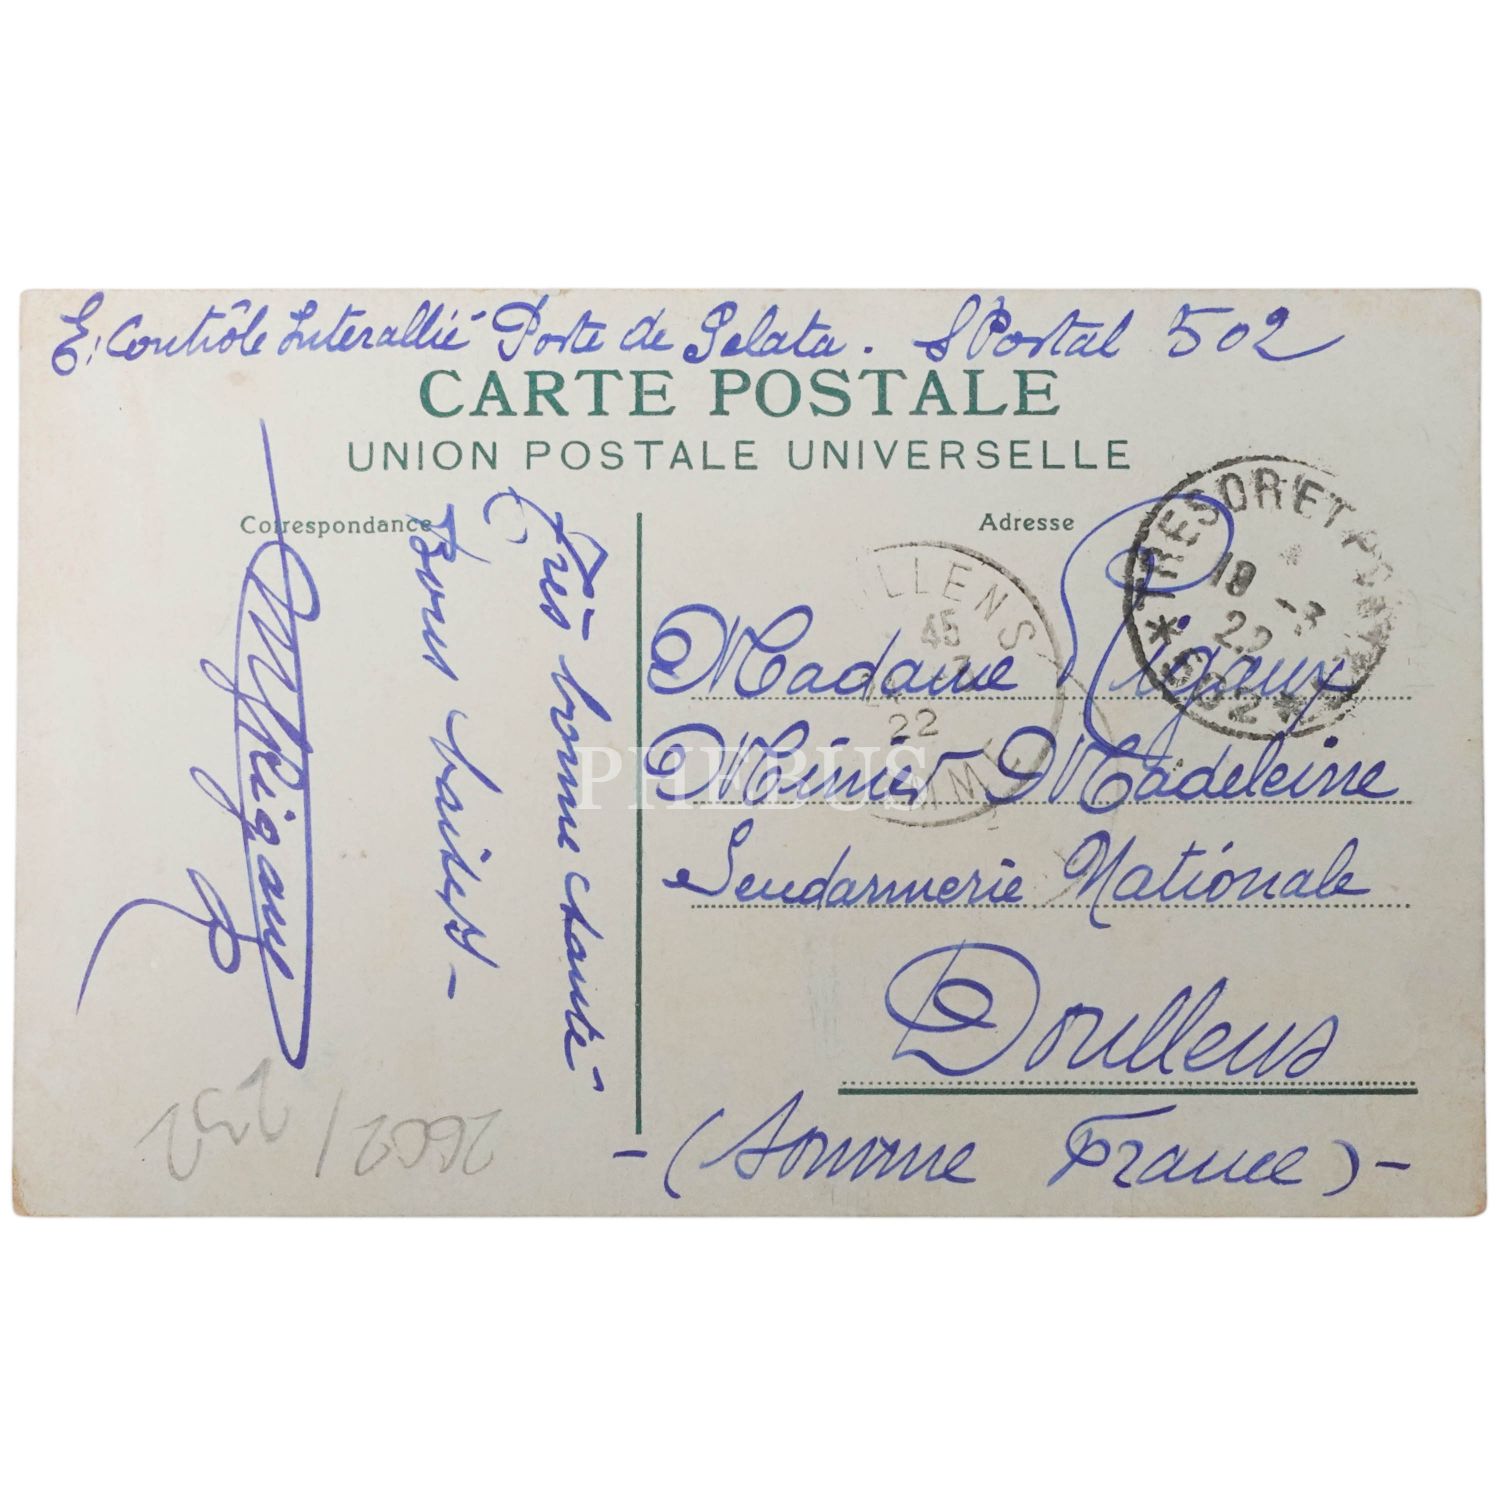 E. Contrôle Interallié Poste de Gelata. S Postal 502
CARTE POSTALE
UNION POSTALE UNIVERSELLE
Correspondance
Adresse
Très bonne santé
Bons baisers
TRESOR ET POSTES
18 -3
22
* 502 *
LLENS
45
22
Madame Rigaux
Minis Madeleine
Gendarmerie Nationale
Doullens
(Somme France)
PHEBUS
2602/
232